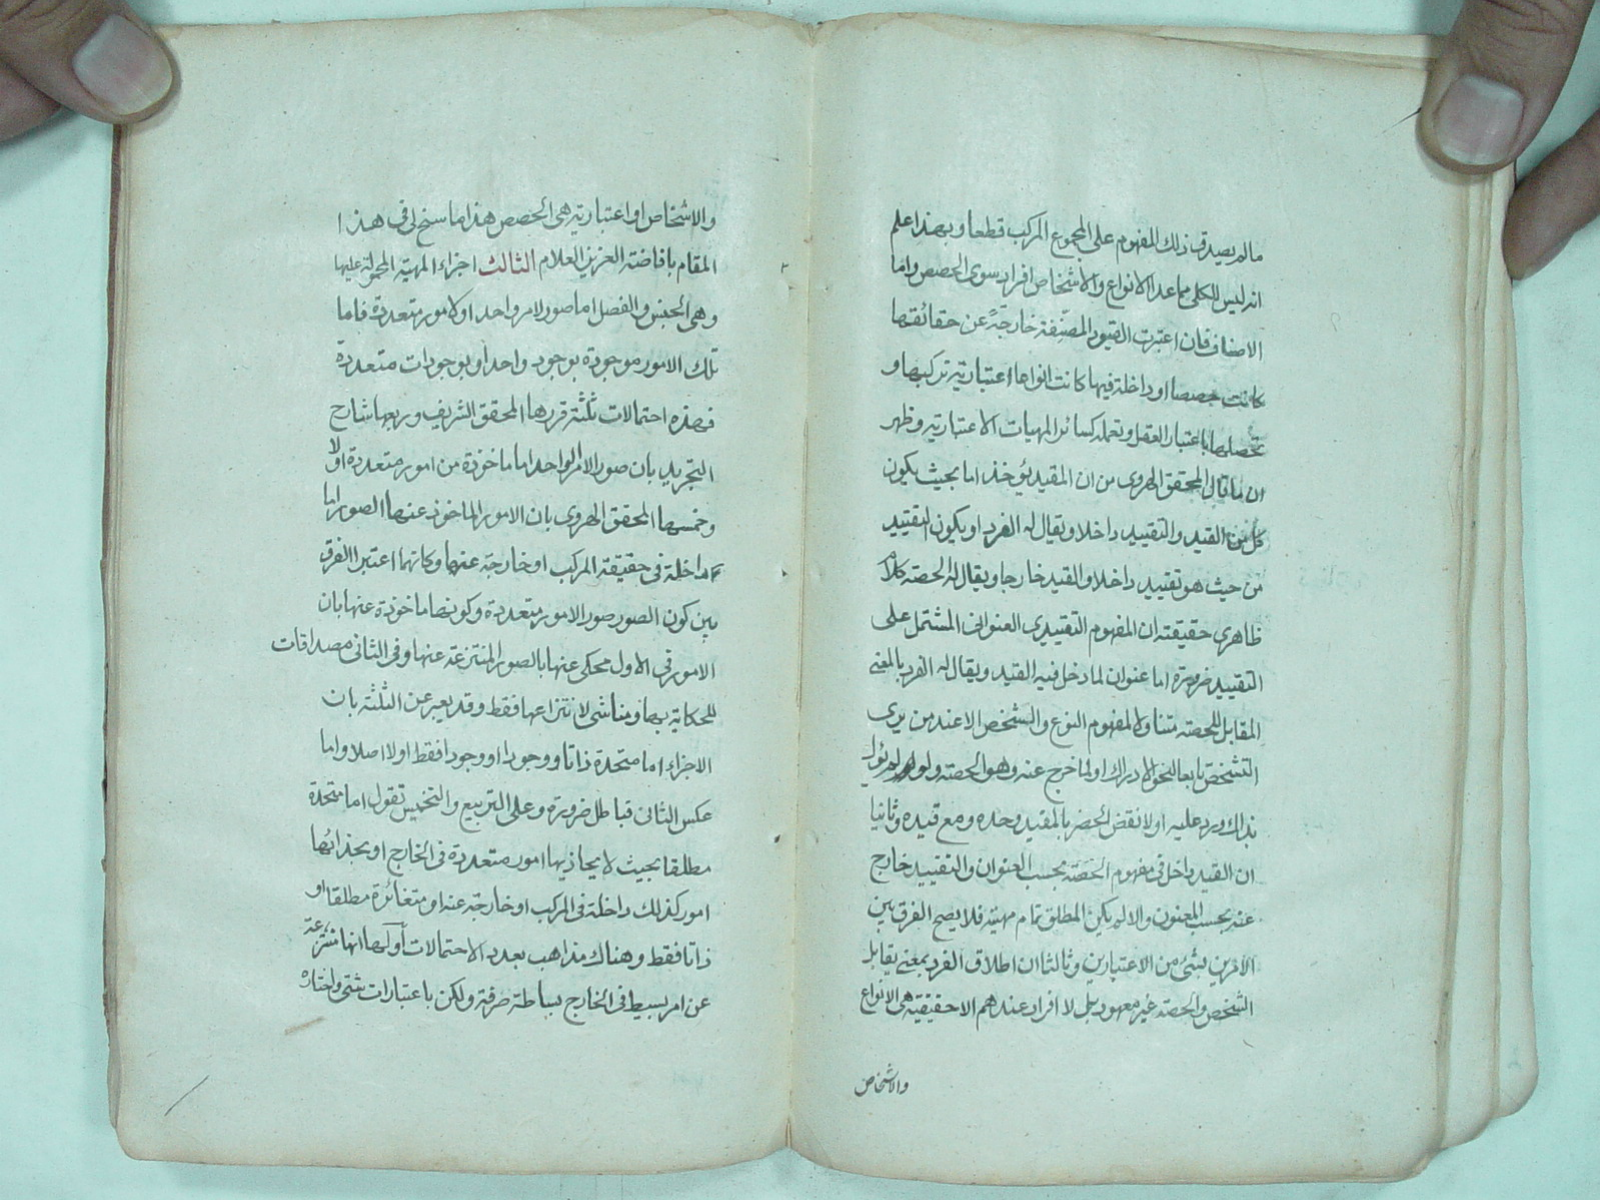 مالم يصدق ذلك المفهوم على المجموع المركب قطعا وبهذا علم
انه ليس للكلى مما عدا الانواع والاشخاص افراد سوى الحصص واما
الاصناف فان اعتبرت القيود المصنّفة خارجةً عن حقائقها
كانت حصصا او داخلة فيها كانت انواعا اعتبارية تركيبها و
تحصلها باعتبار العقل وتعمله كسائر المهيات الاعتبارية وظهر
ان ما قال المحقق الهروى من ان المقيد يؤخذ اما بحيث يكون
كل من القيد والتقييد داخلا ويقال له الفرد او يكون التقييد
من حيث هو تقييد داخلا والقيد خارجا ويقال له الحصة كلام
ظاهرى حقيقته ان المفهوم التقييدى العنوانى المشتمل على
التقييد ضرورة اما عنوان لما دخل فيه القيد ويقال له الفرد بالمعنى
المقابل للحصة متناولا لمفهوم النوع والشخص الا عند من يرى
التشخص تابعا لنحو الادراك او لما خرج عنه وهو الحصة ولو لم يؤول
بذاك يرد عليه اولا نقض الحصر بالمقيد وحده ومع قيده وثانيا
ان القيد داخل فى مفهوم الحصة بحسب العنوان والتقييد خارج
عنه بحسب المعنون والا لم يكن المطلق تمام مهيته فلا يصح الفرق بين
الامرين لشئ من الاعتبارين وثالثا ان اطلاق الفرد بمعنى يقابل
الشخص والحصة غير معهود بل لا افراد عندهم الا حقيقية هى الانواع
والاشخاص
والاشخاص او اعتبارية هى الحصص هذا ما سنح لى فى هذا
المقام بافاضة العزيز العلام الثالث اجزاء المهية المحمولة عليها
وهى الجنس والفصل اما صور لامر واحد او لامور متعددة فاما
تلك الامور موجودة بوجود واحد او بوجودات متعددة
فهذه احتمالات ثلثة قررها المحقق الشريف وربعها شارح
التجريد بان صور الامر الواحد اما ماخوذة من امور متعددة اولا
وخمسها المحقق الهروى بان الامور الماخوذ عنها الصور اما
داخلة فى حقيقة المركب او خارجة عنها وكانهما اعتبرا الفرق
بين كون الصور صور الامور متعددة وكونها ماخوذة عنها بان
الامور فى الاول محكى عنها بالصور المنتزعة عنها وفى الثانى مصداقات
للحكاية بها ومناشى لانتزاعها فقط وقد يعبر عن الثلثة بان
الاجزاء اما متحدة ذاتا ووجودا او وجودا فقط اولا اصلا واما
عكس الثانى فباطل ضرورة وعلى التربيع والتخميس تقول اما متحدة
مطلقا بحيث لا يحاذيها امور متعددة فى الخارج او بحذائها
امور كذلك داخلة فى المركب او خارجة عنه او متغائرة مطلقا او
ذاتا فقط وهناك مذاهب بعدد الاحتمالات اولها انها منتزعة
عن امر بسيط فى الخارج بساطة صرفة ولكن باعتبارات شتى واختاره